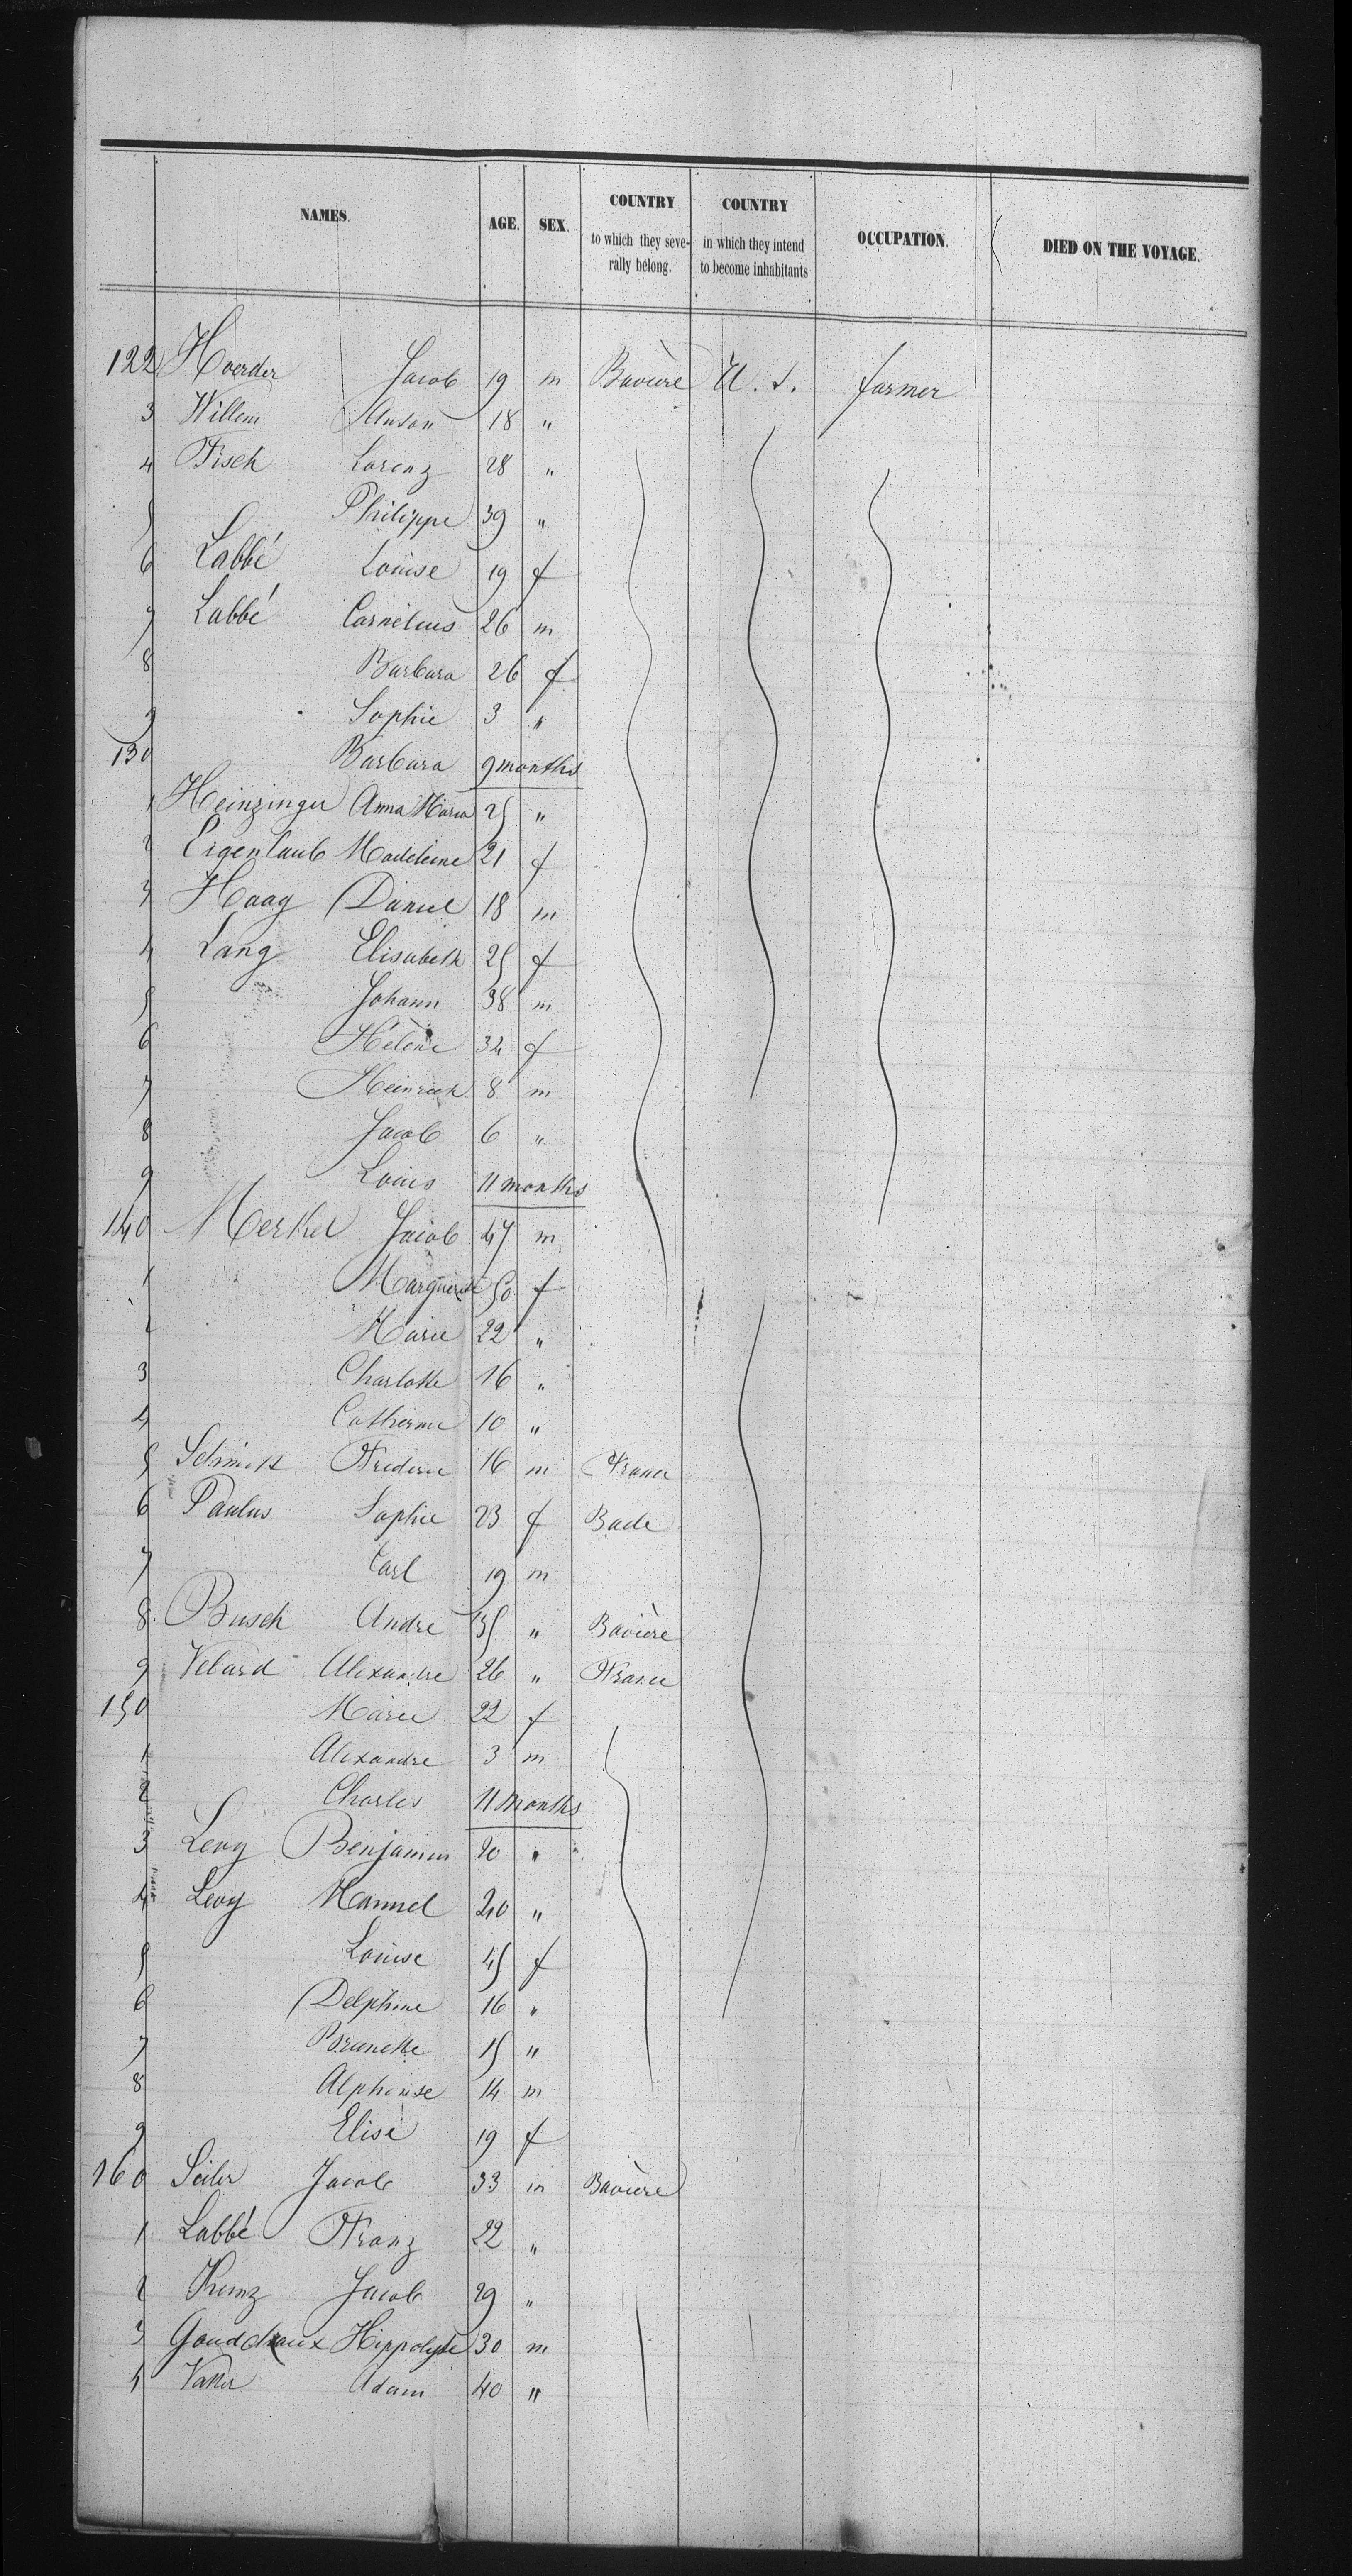 NAMES. AGE. SEX. COUNTRY to which they seve-rally belong. COUNTRY in which they intend to become inhabitants OCCUPATION. DIED ON THE VOYAGE.
122 Hoerder Jacob 19 m Bavière U. S. farmer
3 Willem Anton 18 "
4 Fisch Lorenz 28 "
5 Philippe 39 "
6 Labbé Louise 19 f
7 Labbé Cornelius 26 m
8 Barbara 26 f
9 Sophie 3 "
130 Barbara 9 months
1 Heinzinger Anna Maria 25 "
2 Eigenlaub Madeleine 21 f
3 Haag Daniel 18 m
4 Lang Elisabeth 25 f
5 Johann 38 m
6 Hélène 34 f
7 Heinrich 8 m
8 Jacob 6 "
9 Louis 11 months
140 Merkel Jacob 47 m
1 Marguerite 50 f
2 Marie 22 "
3 Charlotte 16 "
4 Catherine 10 "
5 Schmitt Frederic 16 m France
6 Paulus Sophie 23 f Bade
7 Carl 19 m
8 Busch André 35 " Bavière
9 Velard Alexandre 26 " France
150 Marie 22 f
1 Alexandre 3 m
2 Charles 11 months
3 Levy Benjamin 20 "
4 Levy Manuel 40 "
5 Louise 45 f
6 Delphine 16 "
7 Brunette 15 "
8 Alphonse 14 m
9 Elise 19 f
160 Seiler Jacob 33 m Bavière
1 Labbé Franz 22 "
2 Kunz Jacob 29 "
3 Hippolyte 30 m
4 Adam 40 "